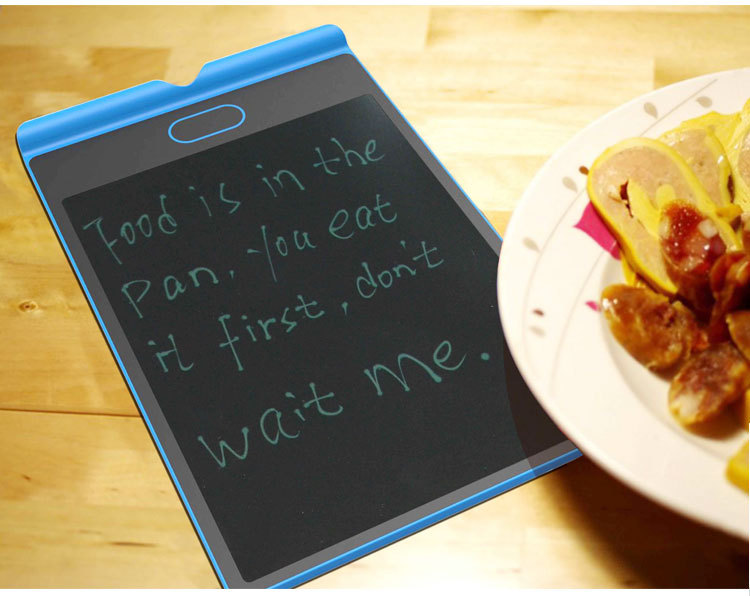 Food is in the
Pan. You eat
it first, don't
wait me.